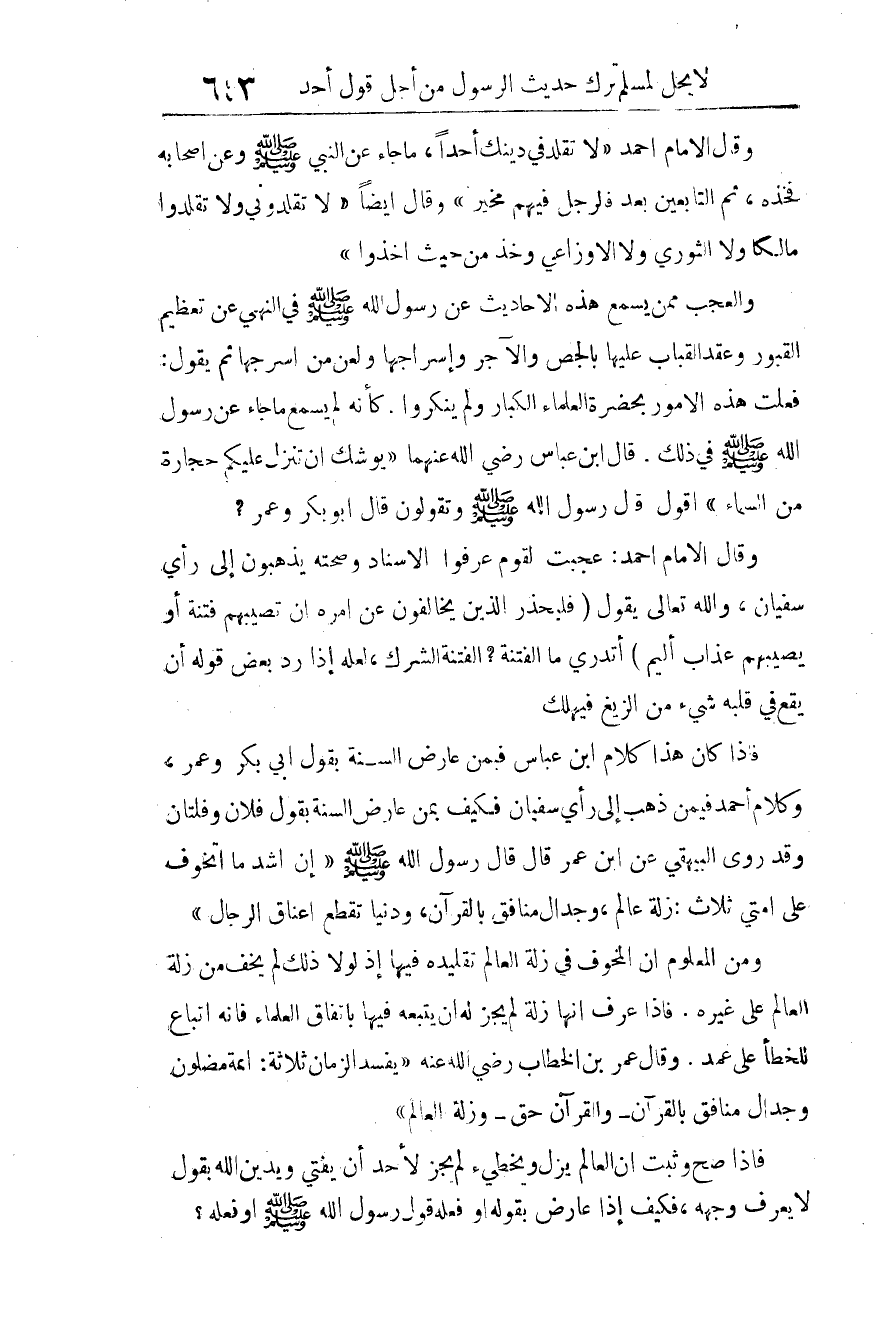 لا يحل لمسلم ترك حديث الرسول من أجل قول أحد ٦٤٣
وقال الامام احمد «لا تقلد في دينك أحداً ، ما جاء عن النبي ﷺ وعن اصحابه
فخذه ، ثم التابعين بعد فالرجل فيهم مخير » وقال ايضاً « لا تقلدوني ولا تقلدوا
مالكا ولا الثوري ولا الاوزاعي وخذ من حيث اخذوا »
والعجب ممن يسمع هذه الاحاديث عن رسول الله ﷺ في النهي عن تعظيم
القبور وعقد القباب عليها بالجص والآجر وإسراجها ولعن من اسرجها ثم يقول :
فعلت هذه الامور بحضرة العلماء الكبار ولم ينكروا . كأنه لم يسمع ما جاء عن رسول
الله ﷺ في ذلك . قال ابن عباس رضي الله عنهما «يوشك ان تنزل عليكم حجارة
من السماء » اقول قال رسول الله ﷺ وتقولون قال ابو بكر وعمر ?
وقال الامام احمد : عجبت لقوم عرفوا الاسناد وصحته يذهبون إلى رأي
سفيان ، والله تعالى يقول ( فليحذر الذين يخالفون عن امره ان تصيبهم فتنة أو
يصيبهم عذاب أليم ) أتدري ما الفتنة ? الفتنة الشرك ، لعله إذا رد بعض قوله أن
يقع في قلبه شيء من الزيغ فيهلك
فاذا كان هذا كلام ابن عباس فيمن عارض السنة بقول ابي بكر وعمر ،
وكلام أحمد فيمن ذهب إلى رأي سفيان فكيف بمن عارض السنة بقول فلان وفلتان
وقد روى البيهقي عن ابن عمر قال قال رسول الله ﷺ « إن اشد ما اتخوف
على امتي ثلاث : زلة عالم ، وجدال منافق بالقرآن، ودنيا تقطع اعناق الرجال »
ومن المعلوم ان المخوف في زلة العالم تقليده فيها إذ لولا ذلك لم يخف من زلة
العالم على غيره . فاذا عرف انها زلة لم يجز له ان يتبعه فيها باتفاق العلماء فانه اتباع
للخطأ على عمد . وقال عمر بن الخطاب رضي الله عنه «يفسد الزمان ثلاثة : ائمة مضلون
وجدال منافق بالقرآن ـ والقرآن حق ـ وزلة العالم»
فاذا صح وثبت ان العالم يزل ويخطيء لم يجز لأحد أن يفتي ويدين الله بقول
لا يعرف وجهه ، فكيف إذا عارض بقوله او فعله قول رسول الله ﷺ او فعله ؟